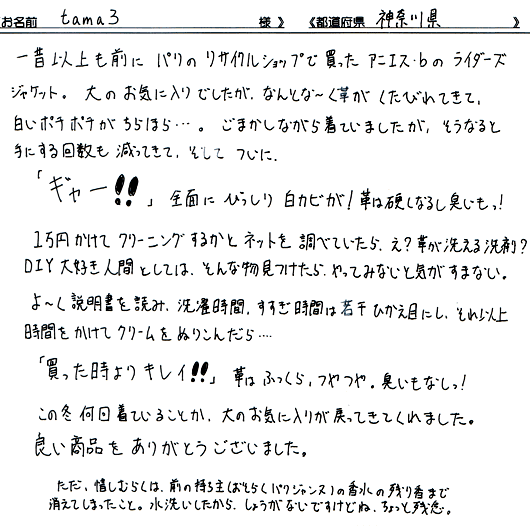 お名前 tama3 様 》 《都道府県 神奈川県 》
一昔以上も前に パリの リサイクルショップで買った アニエス・bの ライダーズ
ジャケット。 大のお気に入りでしたが、なんとな〜く革が くたびれてきて、
白いポチポチが ちらほら…。 ごまかしながら着ていましたが、そうなると
手にする回数も 減ってきて、そして ついに、
「ギャー!!」 全面に びっしり 白カビが! 革は硬くなるし臭いもっ!
1万円かけて クリーニングするかと ネットを 調べていたら、え?革が洗える洗剤?
DIY大好き人間としては、そんな物見つけたら、やってみないと気がすまない。
よ〜く説明書を読み、洗濯時間、すすぎ時間は若干 ひかえ目にし、それ以上
時間をかけてクリームをぬりこんだら‥‥
「買った時よりキレイ!!」 革は ふっくら、つやつや。臭いもなしっ!
この冬 何回着ていることか、大のお気に入りが戻ってきてくれました。
良い商品を ありがとうございました。
ただ、惜しむらくは、前の持ち主(おそらくパリジャンヌ)の香水の 残り香まで
消えてしまったこと。水洗いしたから、しょうがないですけどね、ちょっと残念。